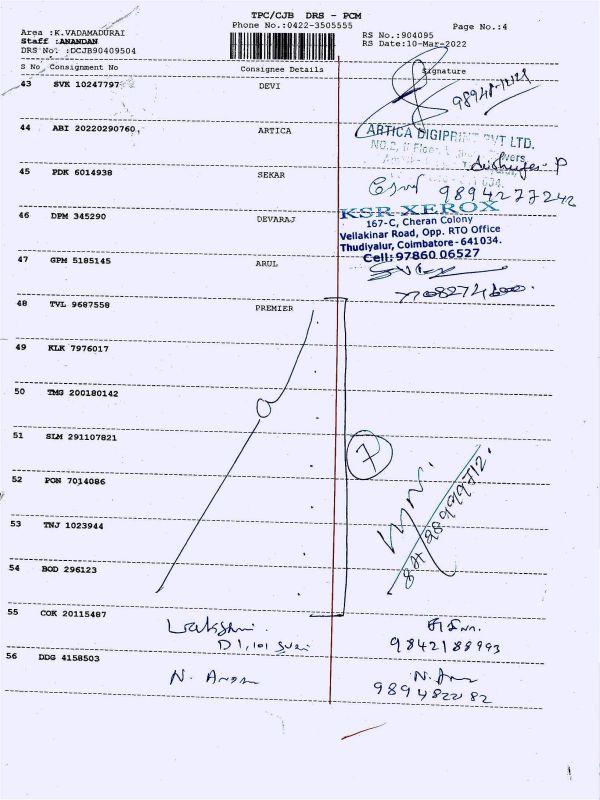 TPC/CJB DRS - PCM
Phone No.:0422-3505555
Page No.:4
Area :K.VADAMADURAI
Staff :ANANDAN
DRS No. :DCJB90409504
RS No.:904095
RS Date:10-Mar-2022
S No Consignment No Consignee Details Signature
43 SVK 10247797 DEVI
44 ABI 20220290760, ARTICA
ARTICA DIGIPRINT PVT LTD.
45 PDK 6014938 SEKAR
9894277242
46 DPM 345290 DEVARAJ
KSR XEROX
167-C, Cheran Colony
Vellakinar Road, Opp. RTO Office
Thudiyalur, Coimbatore-641034.
Cell: 97860 06527
47 GPM 5185145 ARUL
48 TVL 9687558 PREMIER
49 KLK 7976017
50 TMG 200180142
51 SLM 291107821
7
52 PON 7014086
53 TNJ 1023944
54 BOD 296123
55 COK 20115487
Lakshmi
D1,101
9842188993
56 DDG 4158503
N.
N.
9894822182